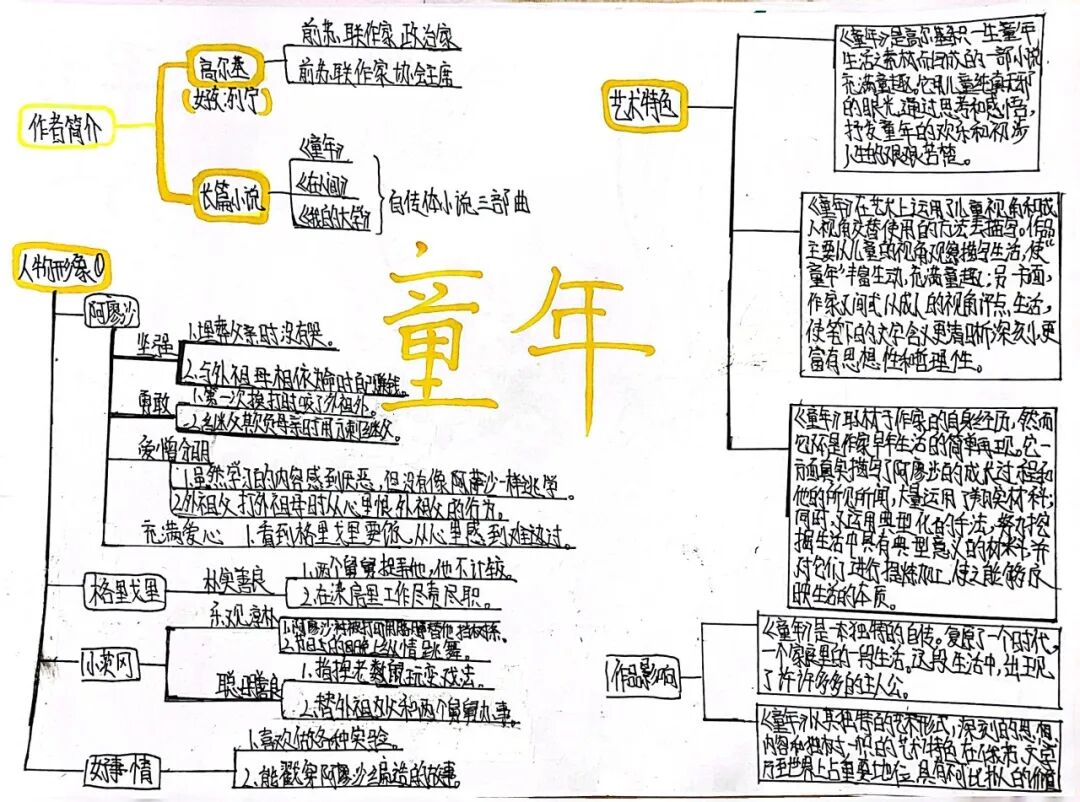 童年
作者简介
高尔基
好友:列宁
前苏联作家,政治家
前苏联作家协会主席
长篇小说
《童年》
《在人间》
《我的大学》
自传体小说三部曲
人物形象①
阿廖沙
坚强
1.埋葬父亲时没有哭。
2.与外祖母相依为命时自己赚钱。
勇敢
1.第一次挨打时咬了外祖父。
2.继父欺负母亲时用刀刺继父。
爱憎分明
1.虽然学习的内容感到厌恶,但没有像阿萨沙一样逃学。
2.外祖父打外祖母时从心里恨外祖父的行为。
充满爱心
1.看到格里戈里要饭,从心里感到难过。
格里戈里
朴实善良
1.两个舅舅捉弄他,他不计较。
2.在染房里工作尽责尽职。
小茨冈
乐观淳朴
1.阿廖沙被打时用胳膊替他挡树条。
2.节日的晚上纵情跳舞。
聪明善良
1.指挥老数鼠玩变戏法。
2.替外祖父和两个舅舅办事。
好事情
1.喜欢做各种实验。
2.能戳穿阿廖沙编造的故事。
艺术特色
《童年》是高尔基以一生童年
生活之素材而写成的一部小说
充满童趣。它用儿童纯真无邪
的眼光,通过思考和感悟,
抒发童年的欢乐和初涉
人生的艰艰苦楚。
《童年》在艺术上运用了儿童视角和成
人视角交替使用的方法去描写。作品
主要从儿童的视角观察描写生活,使“
童年”丰富生动,充满童趣;另一方面,
作家又间或从成人的视角评点,生活,
使笔下的文字含义更清晰深刻,更
富有思想性和哲理性。
《童年》取材于作家的自身经历,然而
它不是作家早年生活的简单再现。它一
方面真实描写了阿廖沙的成长过程和
他的所见所闻,大量运用了真实材料;
同时又运用典型化的手法,努力挖
掘生活中具有典型意义的材料,并
对它们进行提炼加工,使之能够反
映生活的本质。
作品影响
《童年》是一本独特的自传。复原了一个时代,
一个家庭里的一段生活。这段生活中,出现
了许许多多的主人公。
《童年》以其独特的艺术形式,深刻的思想
内容和独树一帜的艺术特色在俄苏文学
乃至世界上占重要地位,具有不可比拟的价值